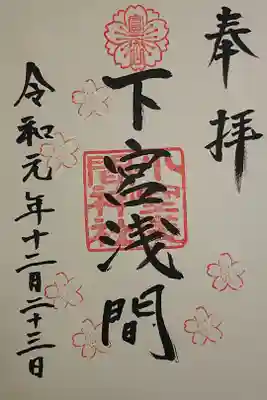 奉拝
下宮浅間
令和元年十二月二十三日